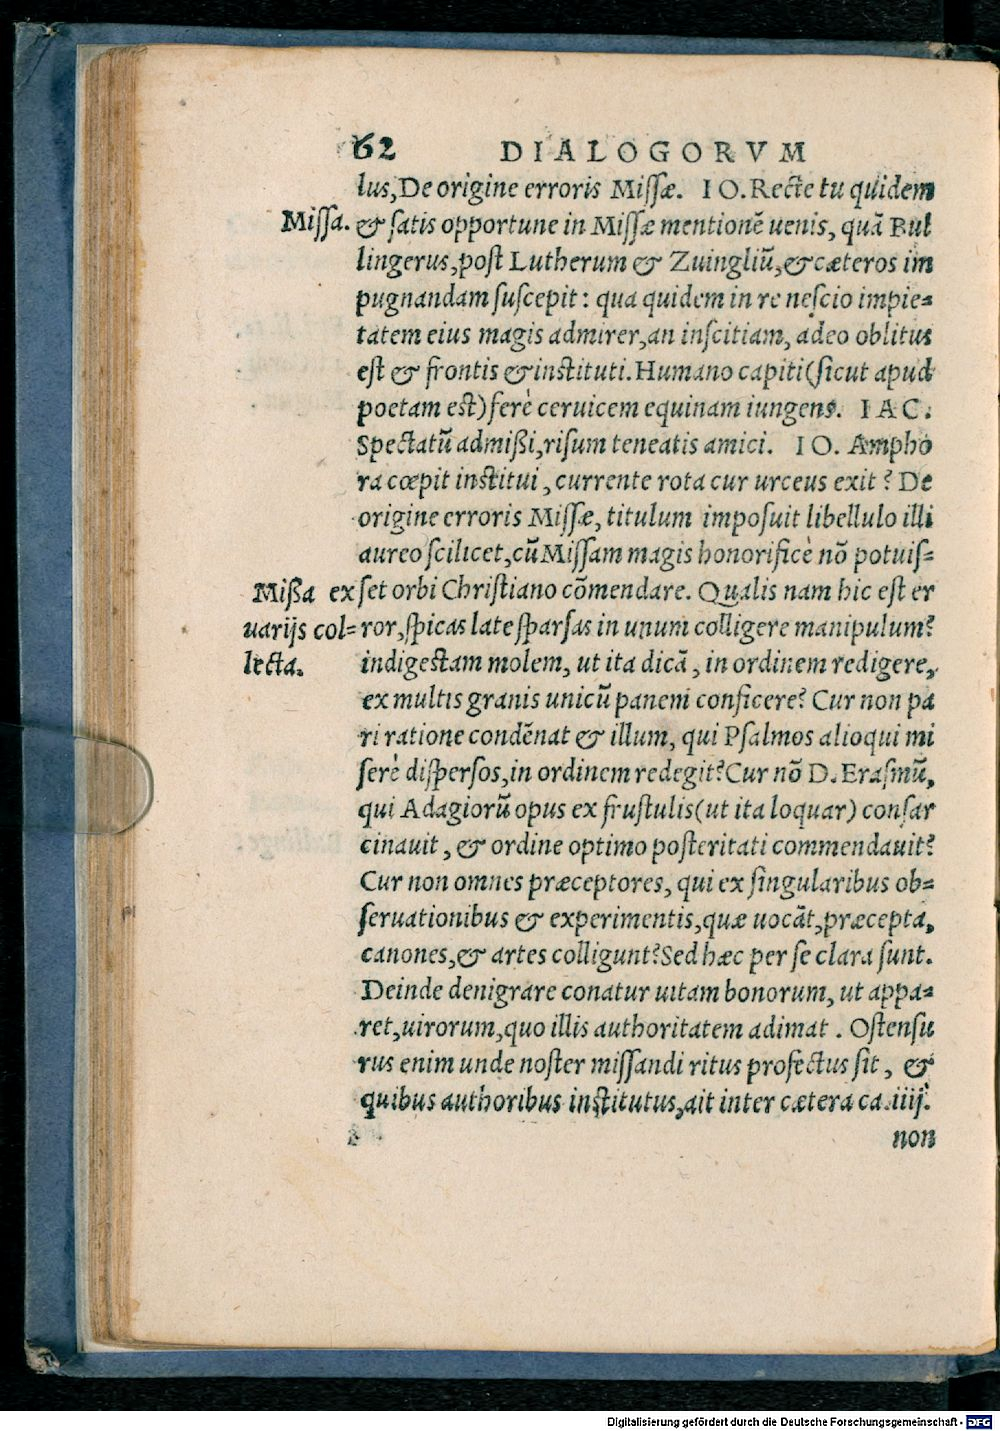 62 DIALOGORVM
lus, De origine erroris Missæ. IO. Recte tu quidem
Missa.
& satis opportune in Missæ mentionē uenis, quā Bul
lingerus, post Lutherum & Zuingliū, & cæteros im
pugnandam suscepit: qua quidem in re nescio impie=
tatem eius magis admirer, an inscitiam, adeo oblitus
est & frontis & instituti. Humano capiti (sicut apud
poetam est) ferè ceruicem equinam iungens. IAC.
Spectatū admißi, risum teneatis amici. IO. Ampho
ra cœpit institui, currente rota cur urceus exit? De
origine erroris Missæ, titulum imposuit libellulo illi
aureo scilicet, cū Missam magis honorificè nō potuis=
Mißa ex
uarijs col=
lecta.
set orbi Christiano cōmendare. Qualis nam hic est er
ror, spicas late sparsas in unum colligere manipulum?
indigestam molem, ut ita dicā, in ordinem redigere,
ex multis granis unicū panem conficere? Cur non pa
ri ratione condēnat & illum, qui Psalmos alioqui mi
serè dispersos, in ordinem redegit? Cur nō D. Erasmū,
qui Adagiorū opus ex frustulis (ut ita loquar) consar
cinauit, & ordine optimo posteritati commendauit?
Cur non omnes præceptores, qui ex singularibus ob=
seruationibus & experimentis, quæ uocāt, præcepta,
canones, & artes colligunt? Sed hæc per se clara sunt.
Deinde denigrare conatur uitam bonorum, ut appa=
ret, uirorum, quo illis authoritatem adimat. Ostensu
rus enim unde noster missandi ritus profectus sit, &
quibus authoribus institutus, ait inter cætera ca. iiij.
non
Digitalisierung gefördert durch die Deutsche Forschungsgemeinschaft - DFG